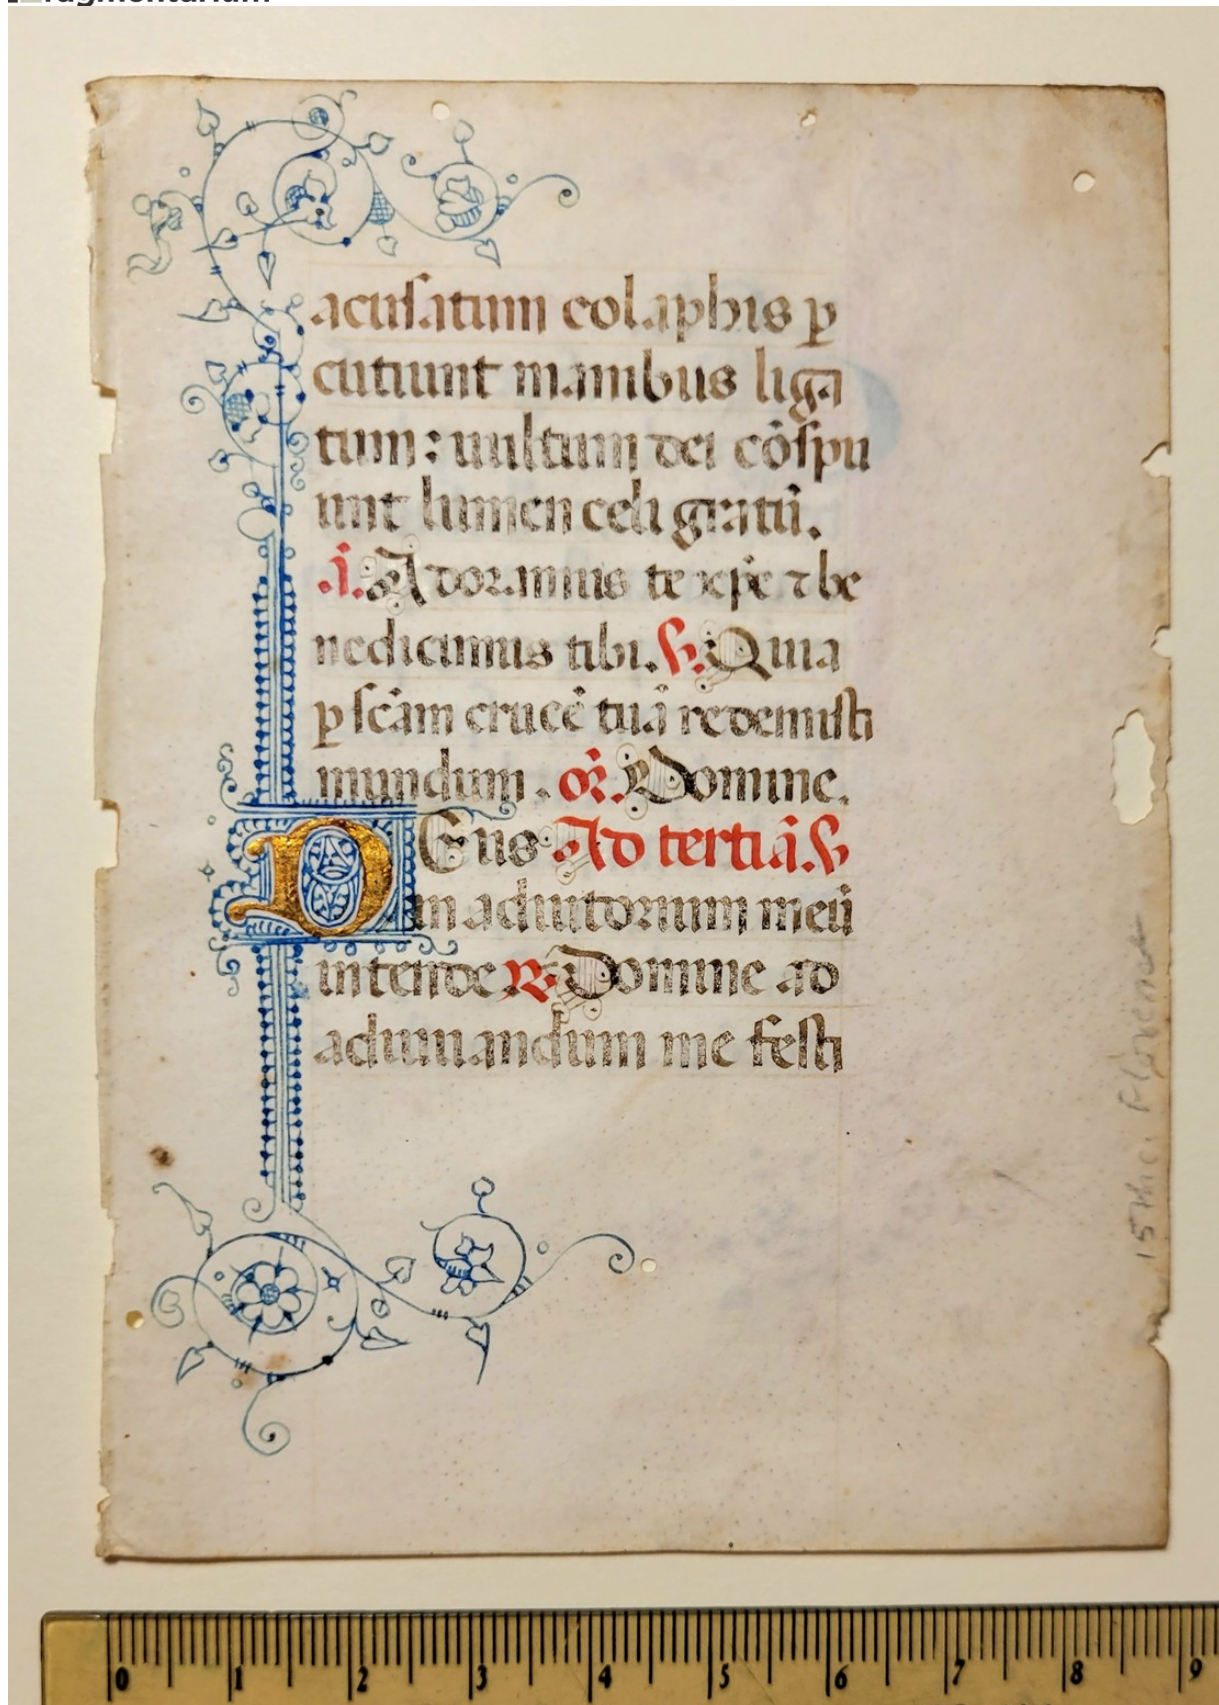 fragmentarium
acusatum colaphis p̱
cutiunt manibus liga
tum: uultum dei cōspu
unt lumen celi gratū.
.ī. Adoramus te xp̄e ⁊ be
nedicimus tibi. ℣. Quia
p̱ scām crucē tuā redemisti
mundum. or̄. Domine.
DEus Ad tertiā. ℣
in adiutorium meū
intende ℟ Domine ad
adiuuandum me festi
15th c. Florence
0 1 2 3 4 5 6 7 8 9